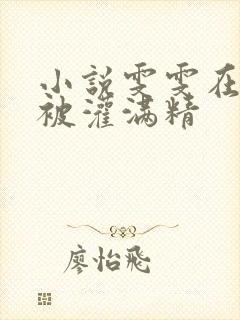 小說雯雯在
被灌满精
廖怡飛